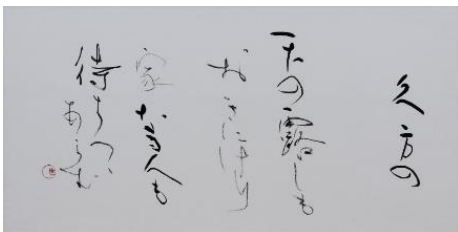 久方の
天の露しも
おきにけり
家なる人も
待ち